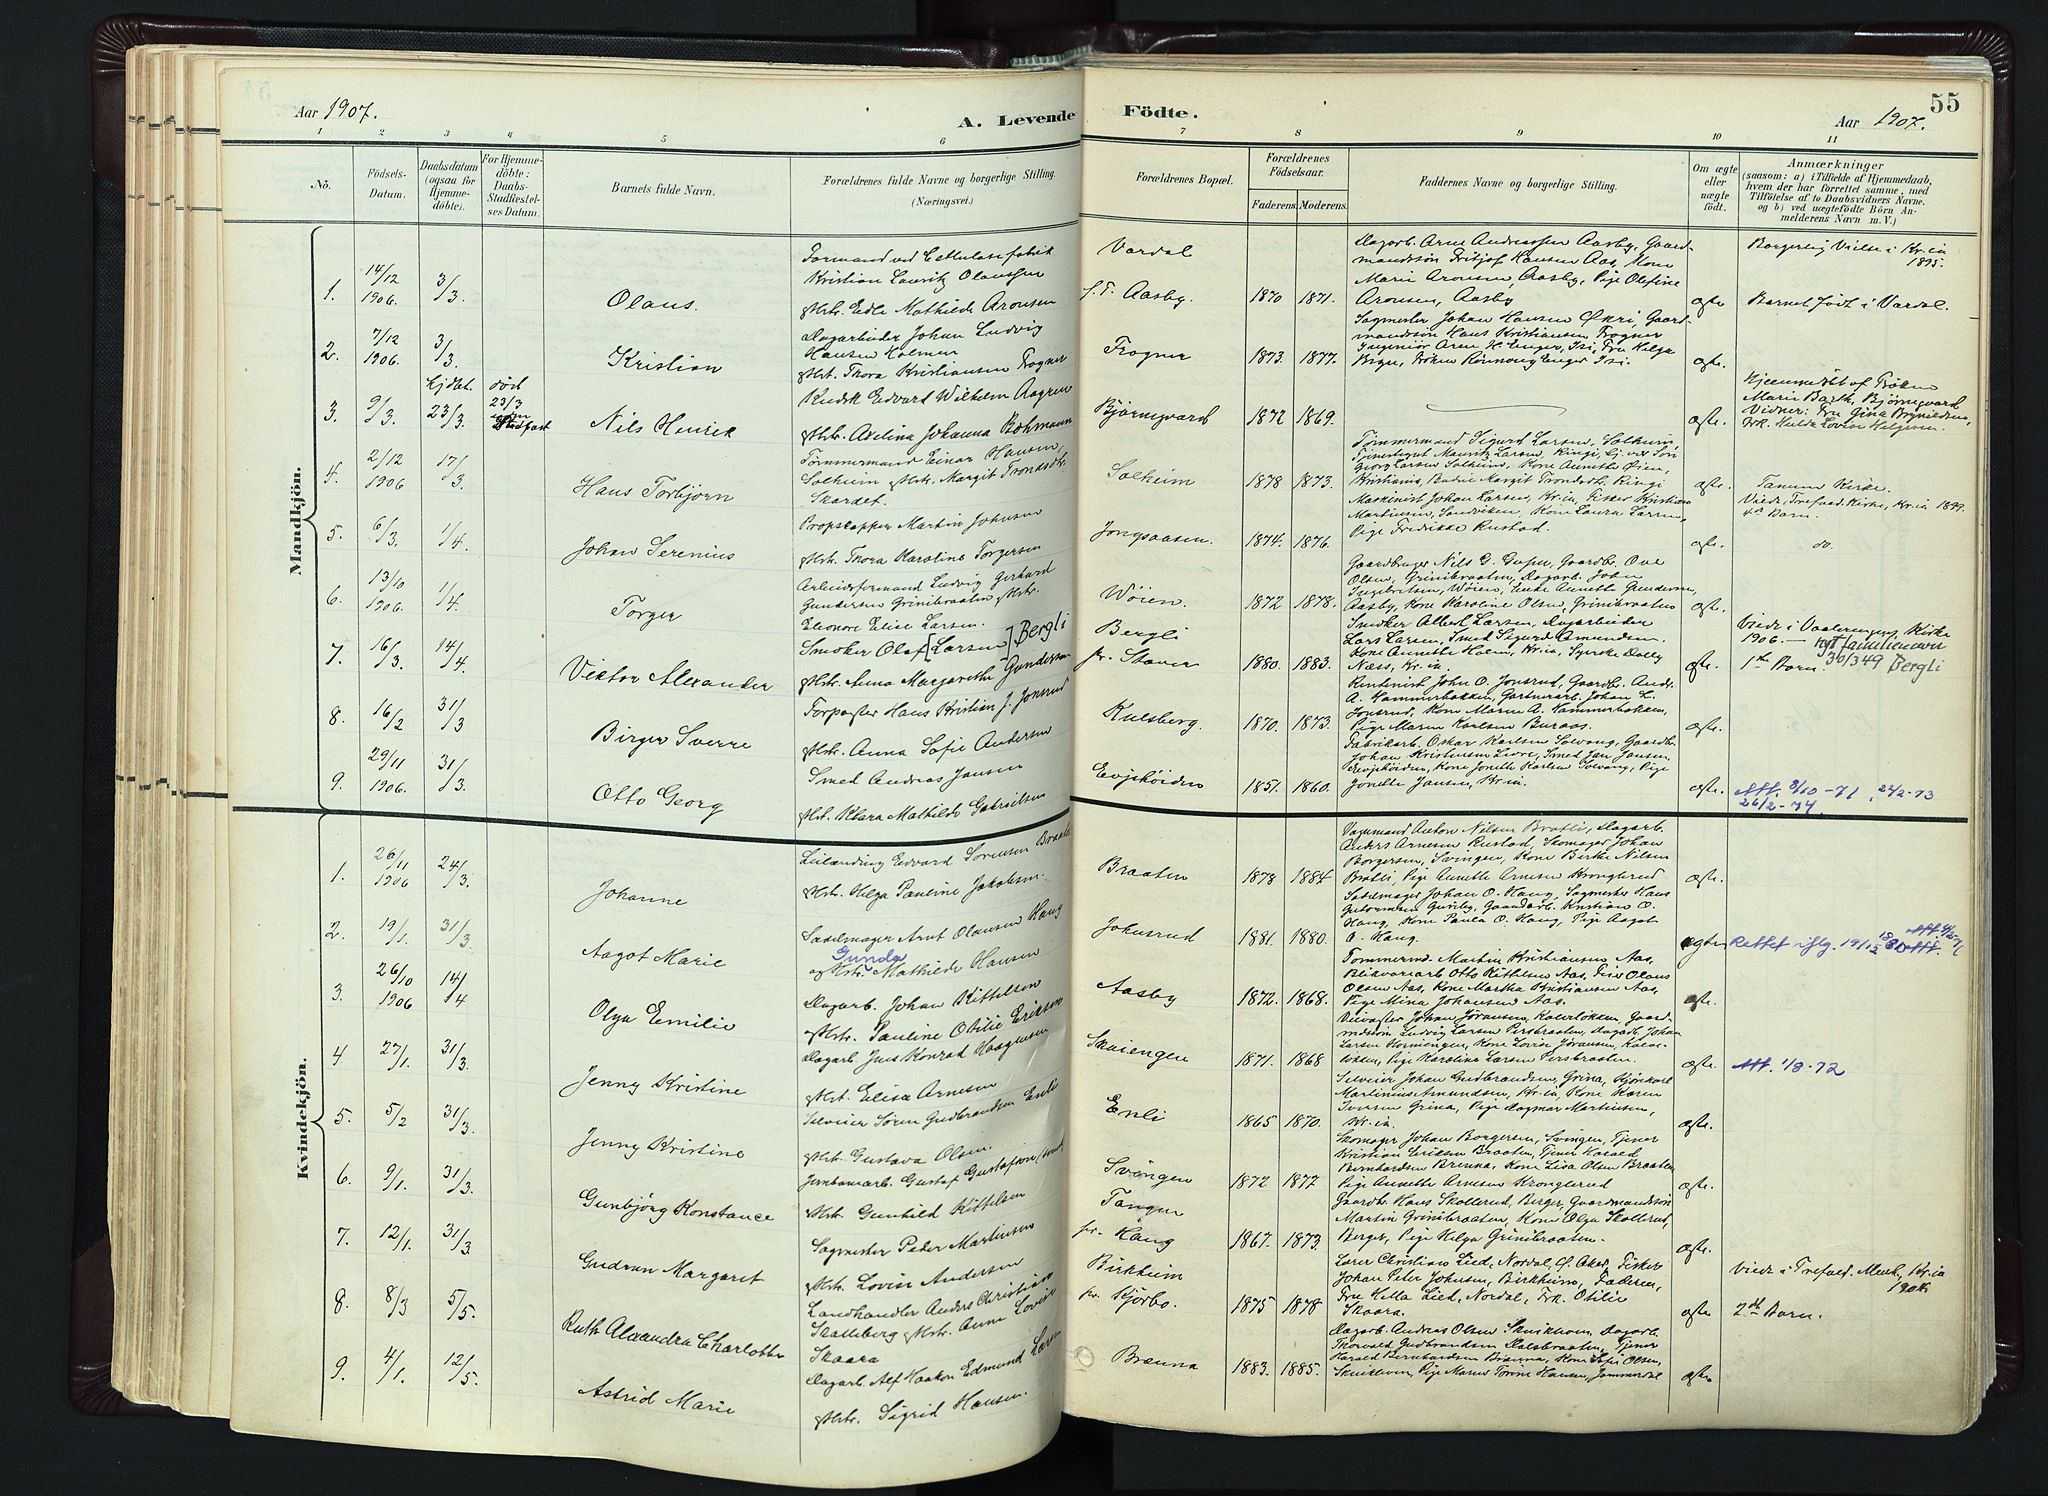 Aar 1907.
A. Levende
Födte.
55
Aar 1907.
1 2 3 4 5 6 7 8 9 10 11
No.
Födsels-
Datum.
Daabsdatum
(ogsaa for
Hjemme-
döbte).
For Hjemme-
döbte:
Daabs-
Stadfæstel-
ses Datum.
Barnets fulde Navn.
Forældrenes fulde Navne og borgerlige Stilling.
(Næringsvei.)
Forældrenes Bopæl.
Forældrenes
Födselsaar.
Faderens. Moderens.
Faddernes Navne og borgerlige Stilling.
Om ægte
eller
uægte
födt.
Anmærkninger
(saasom: a) i Tilfælde af Hjemmedaab,
hvem der har forrettet samme, med
Tilföielse af to Daabsvidners Navne.
og b) ved uægtefödte Börn An-
melderens Navn m. V.)
Mandkjön.
1. 14/12 1906. 3/3. Olaus.
Formand ved Cellulosefabrik
Kristian Lauritz Olaussen
og Hstr. Edle Mathilde Aronsen
Vardal
f. T. Aasby. 1870 1871.
Dagarb. Arne Andreassen Aasby, Gaard-
mandssön Fritjof Hansen Aas, Kone
Marie Aronsen, Aasby, Pige Olefine
Aronsen, Aasby
ægte
Borgerlig Vielse i Kr.ia
1895.
Barnet födt i Vardal.
2. 7/12 1906. 3/3. Kristian
Dagarbeider Johan Ludvig
Hansen Holmen
og Hstr. Thora Kristiansen Frogner
Frogner 1873. 1877.
Sagmester Johan Hansen Økri, Gaard-
mandssön Hans Kristiansen, Frogner
Ingeniör Arne H. Enger, Isi, Fru Helga
ægte.
3. 9/3. Hjdbt. 23/3. död 23/3 Nils Henrik
Kudsk Edvard Wilhelm Aagren
og Hstr. Axelina Johanna Bohmann
Bjørnegaard 1872 1869.
ægte.
Hjemmedöbt af Frøken
Marie Barth, Bjørnegaard
Vidner: Fru Gina Brynildsen,
Frk. Hulda Lovise Helgesen.
4. 2/12 1906 17/3. Hans Torbjörn
Tømmermand Einar Hansen,
Solheim og Hstr. Margit Trondsdtr.
Skardet.
Solheim 1878 1873.
Tömmermand Sigurd Larsen, Solheim,
ægte.
Tanum Kirke.
5. 6/3. 1/4. Johan Serenius
Propskapper Martin Johnsen
og Hstr. Thora Karoline Torgersen
Jongsaasen. 1874. 1876.
Maskinist Johan Larsen, Kr.ia, Fisker Kristian
Martinsen, Sandviken, Kone Laura Larsen,
Pige Fredrikke Rustad.
ægte.
Viede i Trefold. Kirke, Kr.ia 1899.
4de Barn.
do.
6. 13/10 1906. 1/4. Torger
Arbeidsformand Ludvig Gerhard
Gundersen Grinibraaten og Hstr.
Eleonore Elise Larsen.
Wöien. 1872 1878.
Olsen, Grinibraaten, Dagarb. John
Ingebritsen, Wöien, Enke Annette Gundersen,
Aasby, Kone Karoline Olsen, Grinibraaten
ægte.
7. 16/3. 14/4. Viktor Alexander
Smöker Olaf [Larsen] Bergli
og Hstr. Anna Margarethe Gundersen
Bergli
pr. Stover 1880. 1883.
Smöker Albert Larsen, Dagarbeider
Lars Larsen, Smed Sigurd Amundsen.
Kone Annette Holm, Kr.ia, Syerske Dolly
Næss, Kr.ia.
ægte.
Viede i Vaalerengens Kirke
1906. — nytt familienavn
1ste Barn. 30/3 49 Bergli
8. 16/2 31/3 Birger Sverre
Forpagter Hans Kristian J. Jonsrud
og Hstr. Anna Sofie Andersen
Kulsberg. 1870. 1873.
Rentenist John O. Jonsrud, Gaardbr. Andr.
A. Hammerbakken, Gartnerarb. Johan L.
Jonsrud, Kone Maren A. Hammerbakken,
Pige Maren Karlsen Buraas.
ægte.
9. 29/11 1906. 31/3. Otto Georg
Smed Andreas Jansen
og Hstr. Klara Mathilde Gabrielsen
Evjehöiden 1851. 1860.
Fabrikarb. Oskar Karlsen Solvang, Gaardb.
Johan Kristensen Livre, Smed Jan Jansen,
Evjehöiden, Kone Jonette Karlsen Solvang, Pige
Jonette Jansen, Kr.ia.
ægte.
Att. 8/10-71, 22/2-73
26/2-74
Kvindekjön.
1. 26/11 1906 24/3. Johanne
Leilænding Edvard Sörensen Braaten
og Hstr. Helga Pauline Jakobsen.
Braaten 1878 1884
Vognmand Anton Nilsen Bratli, Dagarb.
Anders Arnesen Rustad, Skomager Johan
Borgersen, Svingen, Kone Berthe Nilsen
Bratli, Pige Annette Arnesen Kronglerud
ægte.
2. 19/1. 31/3. Aagot Marie
Sadelmager Arnt Olausen Haug
og Hstr. Gunda Mathilde Hansen
Johnsrud 1881. 1880.
Sadelmager Johan O. Haug, Sagmester Hans
Haug, Kone Paula O. Haug, Pige Aagot
O. Haug.
ægte
3. 26/10 1906 14/4 Olga Emilie
Dagarb. Johan Kittelsen
og Hstr. Pauline Otilie Eriksen
Aasby 1872. 1868.
Tömmerm. Martin Kristiansen Aas,
Blikvarearb. Otto Kittelsen Aas, Pige Olava
Olsen Aas, Kone Martha Kristiansen Aas,
Pige Mina Johansen Aas.
ægte.
4 27/1. 31/3. Jenny Kristine
Dagarb. Jens Konrad Haagensen
og Hstr. Elisa Arnesen
Skuiengen 1871. 1868
Veivogter Johan Jöransen, Kalvelökken, Gaard-
mdssön Ludvig Larsen Persbraaten, Dagarb. Johan
lökken, Pige Karoline Larsen Persbraaten.
ægte.
Att. 1/8-72
5. 5/2 31/3. Jenny Kristine
Selveier Sören Gudbrandsen Enli
og Hstr. Gustava Olsen.
Enli 1865 1870.
Selveier Johan Gudbrandsen, Grina, Kjörekarl
Martinius Amundsen, Kr.ia, Kone Karen
Iversen Grina, Pige Dagmar Martinsen,
Kr.ia.
ægte.
6. 9/1. 31/3. Gunbjörg Konstance
Jernbanearb. Gustaf Gustafson
og Hstr. Gunhild Kittelsen
Svingen 1872 1877
Skomager Johan Borgersen, Svingen, Tjener
Kristian Eriksen Braaten, Tjener Harald
Bernhardsen Brenna, Kone Lisa Olsen Braaten,
Pige Annette Arnesen Kronglerud
ægte.
7. 12/1. 31/3 Gudrun Margaret
Sagmester Peder Martinsen
og Hstr. Lovise Andersen
Tanger
pr. Haug 1867. 1873.
Gaardb. Hans Skollerud, Berger, Gaardmandssön
Martin Grinibraaten, Kone Olga Skollerud,
Berger, Pige Helga Grinibraaten.
ægte.
8. 8/3 5/5. Ruth Alexandra Charlotte
Landhandler Anders Christian
Skalleberg og Hstr. Anne Lovise
Skaara
Birkheim
pr. Kjörbo. 1875 1878
Lærer Christian Lied, Nordal, Ø. Aker, Fisker
Johan Peter Johnsen, Birkheim, Faderen,
Fru Hella Lied, Nordal, Frk. Otilie
Skaara.
ægte
Viede i Trefold. Menh., Kr.ia
2det Barn.
9. 4/1. 12/5. Astrid Marie
Dagarb. Alf Haakon Edmund Larsen
og Hstr. Sigrid Hansen.
Brenna 1883. 1885.
Dagarb. Andreas Olsen Skuikleven, Dagarb.
Thorvald Gudbrandsen Dalsbraaten, Tjener
Harald Bernhardsen Brenna, Kone Sofie Olsen,
Skuikleven, Pige Maren Tomine Hansen, Jammerdal
ægte.